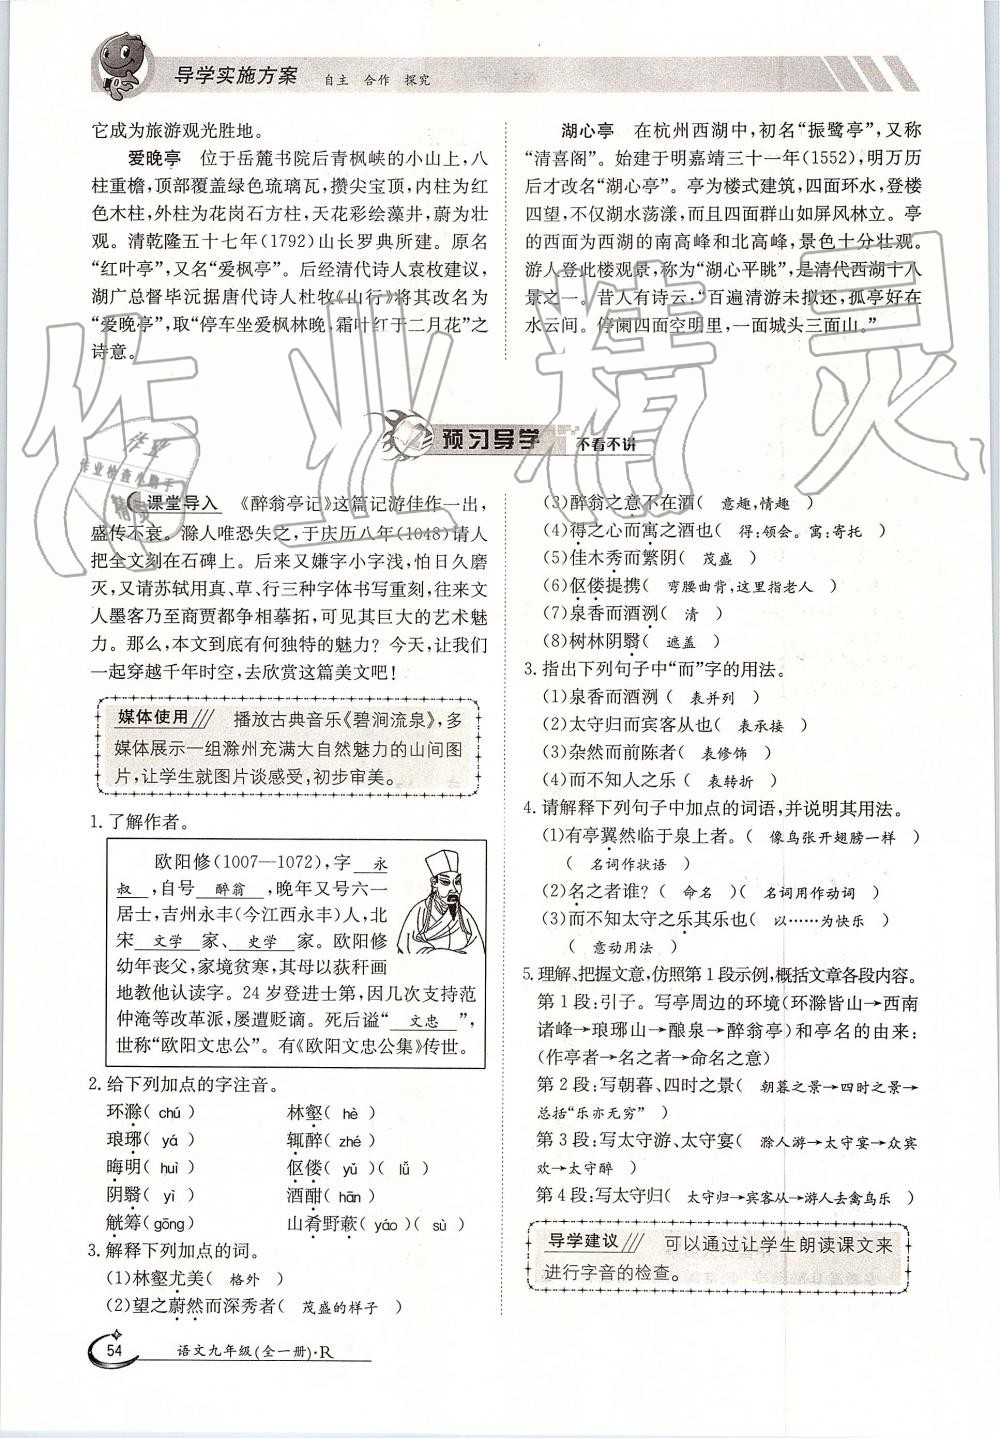 导学实施方案 自主 合作 探究
它成为旅游观光胜地。
爱晚亭 位于岳麓书院后青枫峡的小山上,八
柱重檐,顶部覆盖绿色琉璃瓦,攒尖宝顶,内柱为红
色木柱,外柱为花岗石方柱,天花彩绘藻井,蔚为壮
观。清乾隆五十七年(1792)山长罗典所建。原名
“红叶亭”,又名“爱枫亭”。后经清代诗人袁枚建议,
湖广总督毕沅据唐代诗人杜牧《山行》将其改名为
“爱晚亭”,取“停车坐爱枫林晚,霜叶红于二月花”之
诗意。
湖心亭 在杭州西湖中,初名“振鹭亭”,又称
“清喜阁”。始建于明嘉靖三十一年(1552),明万历
后才改名“湖心亭”。亭为楼式建筑,四面环水,登楼
四望,不仅湖水荡漾,而且四面群山如屏风林立。亭
的西面为西湖的南高峰和北高峰,景色十分壮观。
游人登此楼观景,称为“湖心平眺”,是清代西湖十八
景之一。昔人有诗云:“百遍清游未拟还,孤亭好在
水云间。停阑四面空明里,一面城头三面山。”
预习导学 不看不讲
课堂导入 《醉翁亭记》这篇记游佳作一出,
盛传不衰。滁人唯恐失之,于庆历八年(1048)请人
把全文刻在石碑上。后来又嫌字小字浅,怕日久磨
灭,又请苏轼用真、草、行三种字体书写重刻,往来文
人墨客乃至商贾都争相摹拓,可见其巨大的艺术魅
力。那么,本文到底有何独特的魅力?今天,让我们
一起穿越千年时空,去欣赏这篇美文吧!
媒体使用 播放古典音乐《碧涧流泉》,多
媒体展示一组滁州充满大自然魅力的山间图
片,让学生就图片谈感受,初步审美。
1. 了解作者。
欧阳修(1007—1072),字 永
叔 ,自号 醉翁 ,晚年又号六一
居士,吉州永丰(今江西永丰)人,北
宋 文学 家、 史学 家。欧阳修
幼年丧父,家境贫寒,其母以荻秆画
地教他认读字。24 岁登进士第,因几次支持范
仲淹等改革派,屡遭贬谪。死后谥“ 文忠 ”,
世称“欧阳文忠公”。有《欧阳文忠公集》传世。
2. 给下列加点的字注音。
环滁( chú ) 林壑( hè )
琅琊( yá ) 辄醉( zhé )
晦明( huì ) 伛偻( yǔ )( lǚ )
阴翳( yì ) 酒酣( hān )
觥筹( gōng ) 山肴野蔌( yáo )( sù )
3. 解释下列加点的词。
(1)林壑尤美( 格外 )
(2)望之蔚然而深秀者( 茂盛的样子 )
(3)醉翁之意不在酒( 意趣,情趣 )
(4)得之心而寓之酒也( 得:领会。寓:寄托 )
(5)佳木秀而繁阴( 茂盛 )
(6)伛偻提携( 弯腰曲背,这里指老人 )
(7)泉香而酒洌( 清 )
(8)树林阴翳( 遮盖 )
3. 指出下列句子中“而”字的用法。
(1)泉香而酒洌( 表并列 )
(2)太守归而宾客从也( 表承接 )
(3)杂然而前陈者( 表修饰 )
(4)而不知人之乐( 表转折 )
4. 请解释下列句子中加点的词语,并说明其用法。
(1)有亭翼然临于泉上者。( 像鸟张开翅膀一样 )
( 名词作状语 )
(2)名之者谁?( 命名 )( 名词用作动词 )
(3)而不知太守之乐其乐也( 以……为快乐 )
( 意动用法 )
5. 理解、把握文意,仿照第 1 段示例,概括文章各段内容。
第 1 段:引子。写亭周边的环境(环滁皆山→西南
诸峰→琅琊山→酿泉→醉翁亭)和亭名的由来:
(作亭者→名之者→命名之意)
第 2 段:写朝暮、四时之景( 朝暮之景→四时之景→
总括“乐亦无穷” )
第 3 段:写太守游、太守宴( 滁人游→太守宴→众宾
欢→太守醉 )
第 4 段:写太守归( 太守归→宾客从→游人去禽鸟乐 )
导学建议 可以通过让学生朗读课文来
进行字音的检查。
54 语文九年级(全一册)·R
作业精灵
作业
作业检查小助手
精灵